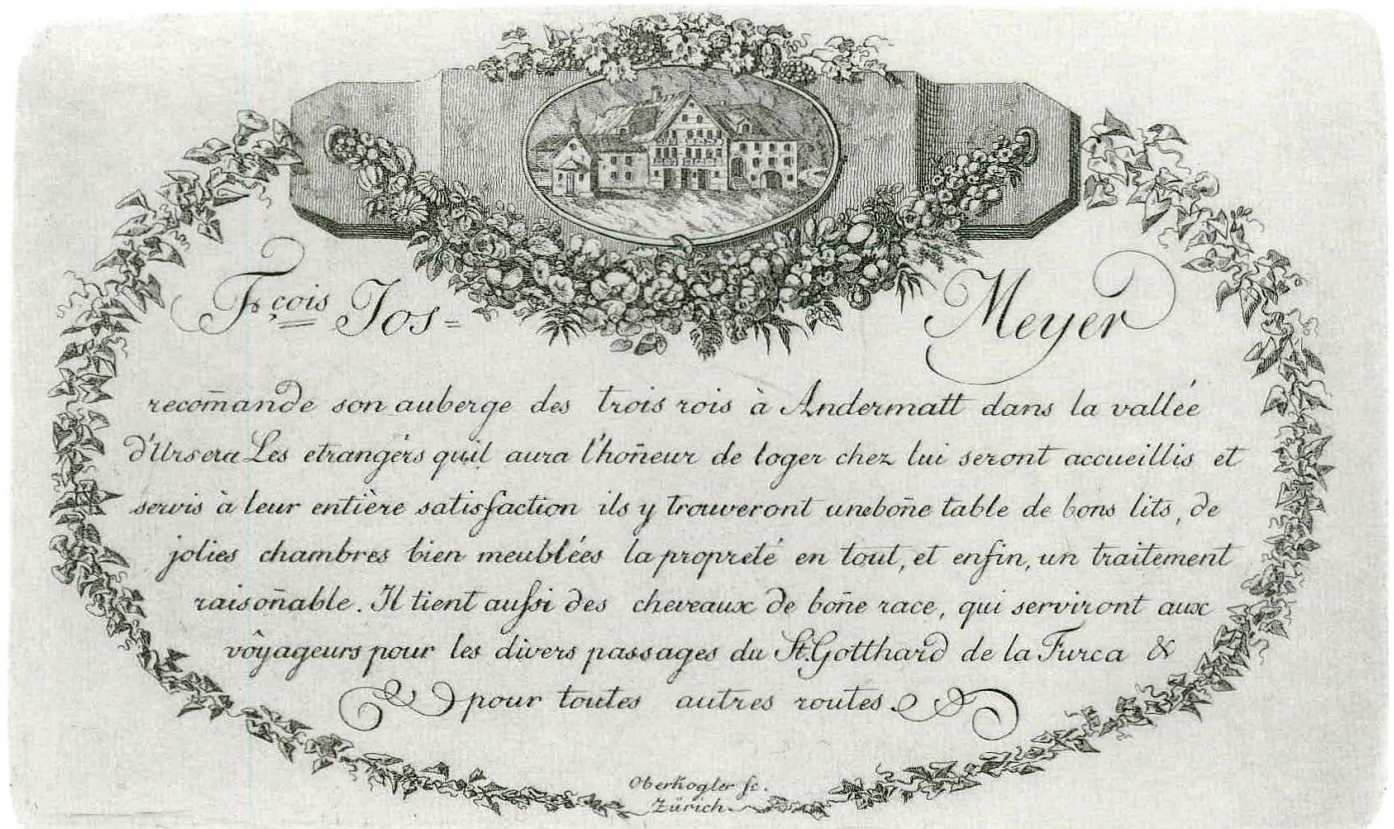 Fçois Jos= Meyer
recom̄ande son auberge des trois rois à Andermatt dans la vallée
d'Ursera Les etrangérs quil aura l'hon̄eur de loger chez lui seront accueillis et
servis à leur entière satisfaction ils y trouveront unebon̄e table de bons lits, de
jolies chambres bien meublées la propreté en tout, et enfin, un traitement
raison̄able. Il tient auſsi des cheveaux de bon̄e race, qui serviront aux
vôyageurs pour les divers passages du St. Gotthard de la Furca &
pour toutes autres routes.
Oberkogler sc.
Zürich.